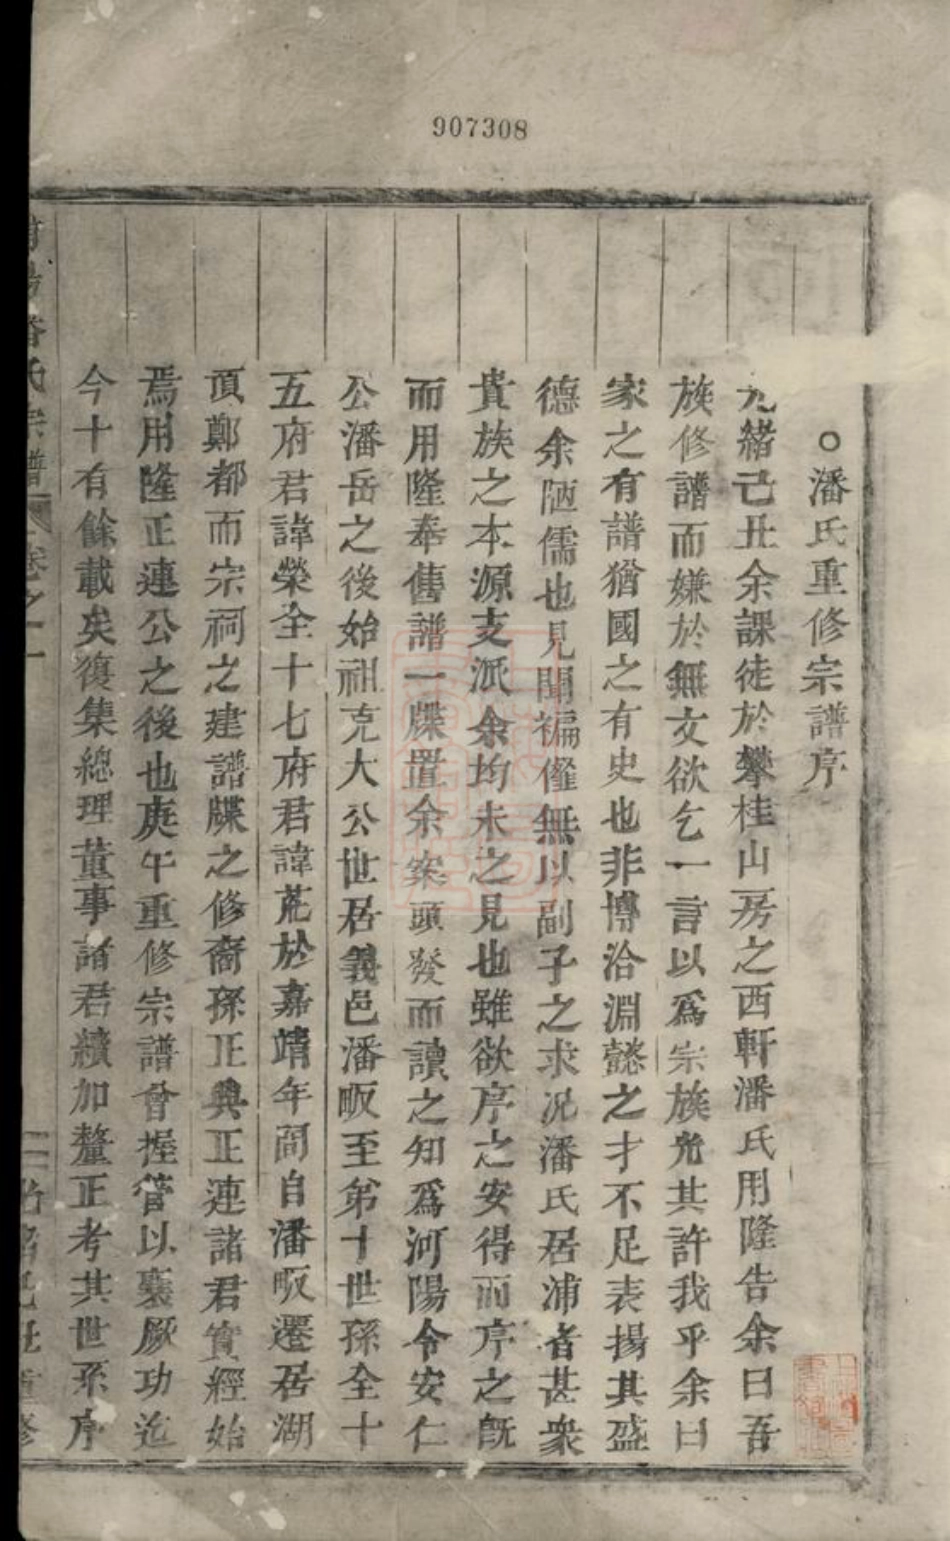 907308
○潘氏重修宗譜序
光緒己丑余課徒於攀桂山房之西軒潘氏用隆告余曰吾
族修譜而嫌於無文欲乞一言以爲宗族光其許我乎余曰
家之有譜猶國之有史也非博洽淵懿之才不足表揚其盛
德余陋儒也見聞褊僅無以副子之求况潘氏居浦者甚衆
貴族之本源支派余均未之見也雖欲序之安得而序之旣
而用隆奉舊譜一牒置余案頭發而讀之知爲河陽令安仁
公潘岳之後始祖克大公世居義邑潘畈至第十世孫全十
五府君諱榮全十七府君諱茈於嘉靖年間自潘畈遷居湖
頂鄭都而宗祠之建譜牒之修裔孫正興正連諸君實經始
焉用隆正連公之後也庚午重修宗譜曾握管以襄厥功迄
今十有餘載矣復集總理董事諸君續加釐正考其世系序
潘氏宗譜 卷之一 二 光緒己丑重修